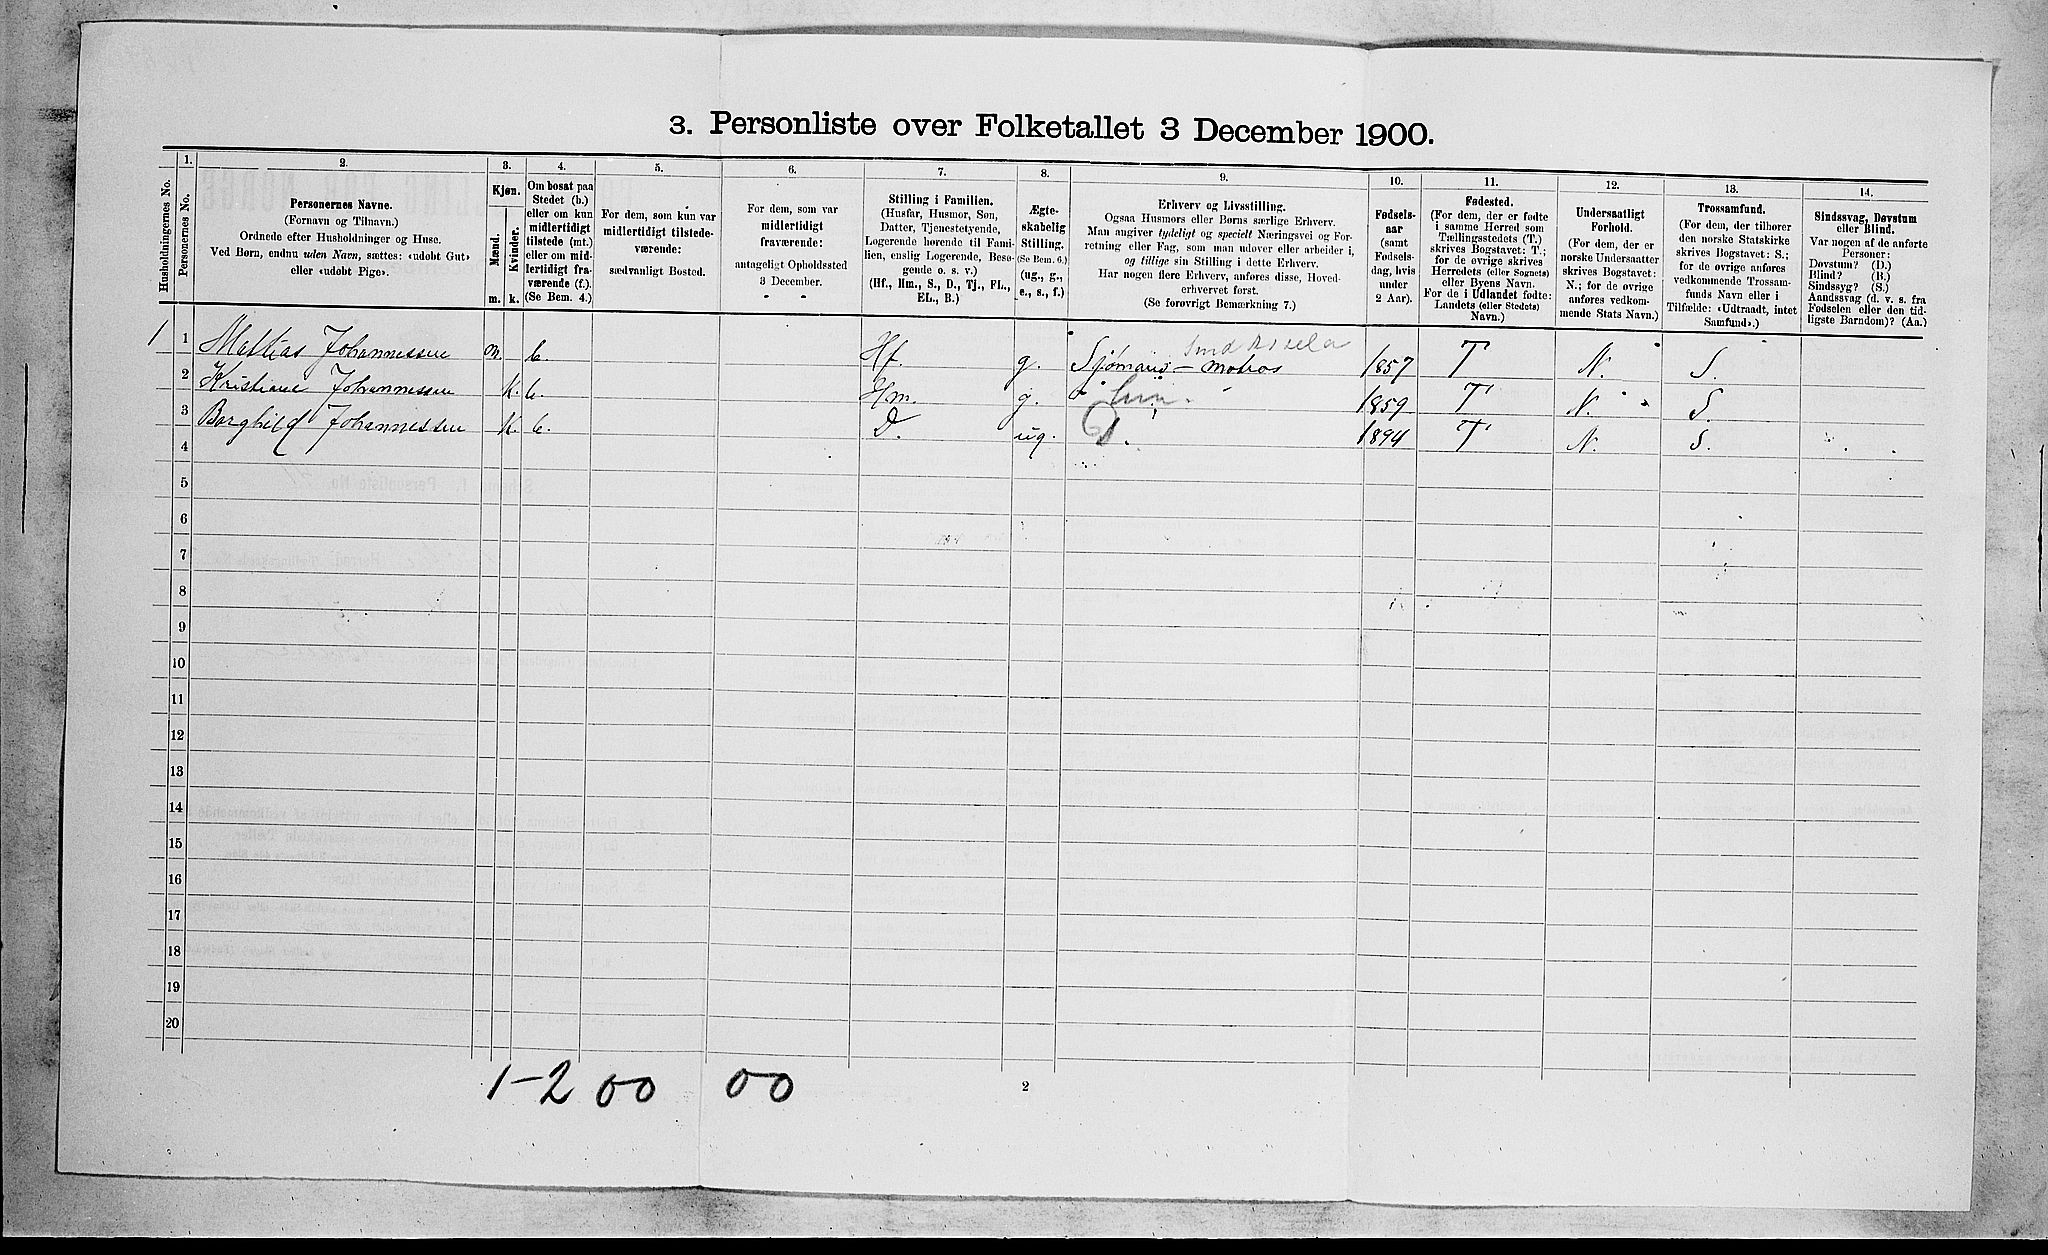 3. Personliste over Folketallet 3 December 1900.
Husholdningernes No.
1. Personernes No.
2. Personernes Navne.
(Fornavn og Tilnavn.)
Ordnede efter Husholdninger og Huse.
Ved Børn, endnu uden Navn, sættes: «udobt Gut»
eller «udobt Pige».
3. Kjøn.
Mænd. m.
Kvinder. k.
4. Om bosat paa
Stedet (b.)
eller om kun
midlertidigt
tilstede (mt.)
eller om mid-
lertidigt fra-
værende (f.).
(Se Bem. 4.)
5. For dem, som kun var
midlertidigt tilstede-
værende:
sædvanligt Bosted.
6. For dem, som var
midlertidigt
fraværende:
antageligt Opholdssted
3 December.
7. Stilling i Familien.
(Husfar, Husmor, Søn,
Datter, Tjenestetyende,
Logerende hørende til Fami-
lien, enslig Logerende, Besø-
gende o. s. v.)
(Hf., Hm., S., D., Tj., FL.,
EL., B.)
8. Ægte-
skabelig
Stilling.
(Se Bem. 6.)
(ug., g.,
e., s., f.)
9. Erhverv og Livsstilling.
Ogsaa Husmors eller Børns særlige Erhverv.
Man angiver tydeligt og specielt Næringsvei og For-
retning eller Fag, som man udover eller arbeider i,
og tillige sin Stilling i dette Erhverv.
Har nogen flere Erhverv, anføres disse, Hoved-
erhvervet først.
(Se forøvrigt Bemærkning 7.)
10. Fødsels-
aar
(samt
Fødsels-
dag, hvis
under
2 Aar).
11. Fødested.
(For dem, der er fødte
i samme Herred som
Tællingsstedets (T.)
skrives Bogstavet: T.;
for de øvrige skrives
Herredets (eller Sognets)
eller Byens Navn.
For de i Udlandet fødte:
Landets (eller Stedets)
Navn.)
12. Undersaatligt
Forhold.
(For dem, der er
norske Undersaatter
skrives Bogstavet:
N.; for de øvrige
anføres vedkom-
mende Stats Navn.)
13. Trossamfund.
(For dem, der tilhører
den norske Statskirke
skrives Bogstavet: S.;
for de øvrige anføres
vedkommende Trossam-
funds Navn eller i
Tilfælde: «Udtraadt, intet
Samfund».)
14. Sindssvag, Døvstum
eller Blind.
Var nogen af de anførte
Personer:
Døvstum? (D.)
Blind? (B.)
Sindssyg? (S.)
Aandssvag (d. v. s. fra
Fødselen eller den tid-
ligste Barndom)? (Aa.)
1 1 Mattias Johannessen m. b. Hf. g. Sjømand - matros 1857 T N. S.
2 Kristiane Johannessen k. b. Hm. g. 1859 T N. S.
3 Borghild Johannessen k. b. D. ug. 1894 T N. S.
4
5
6
7
8
9
10
11
12
13
14
15
16
17
18
19
20
1-2 00 00
2